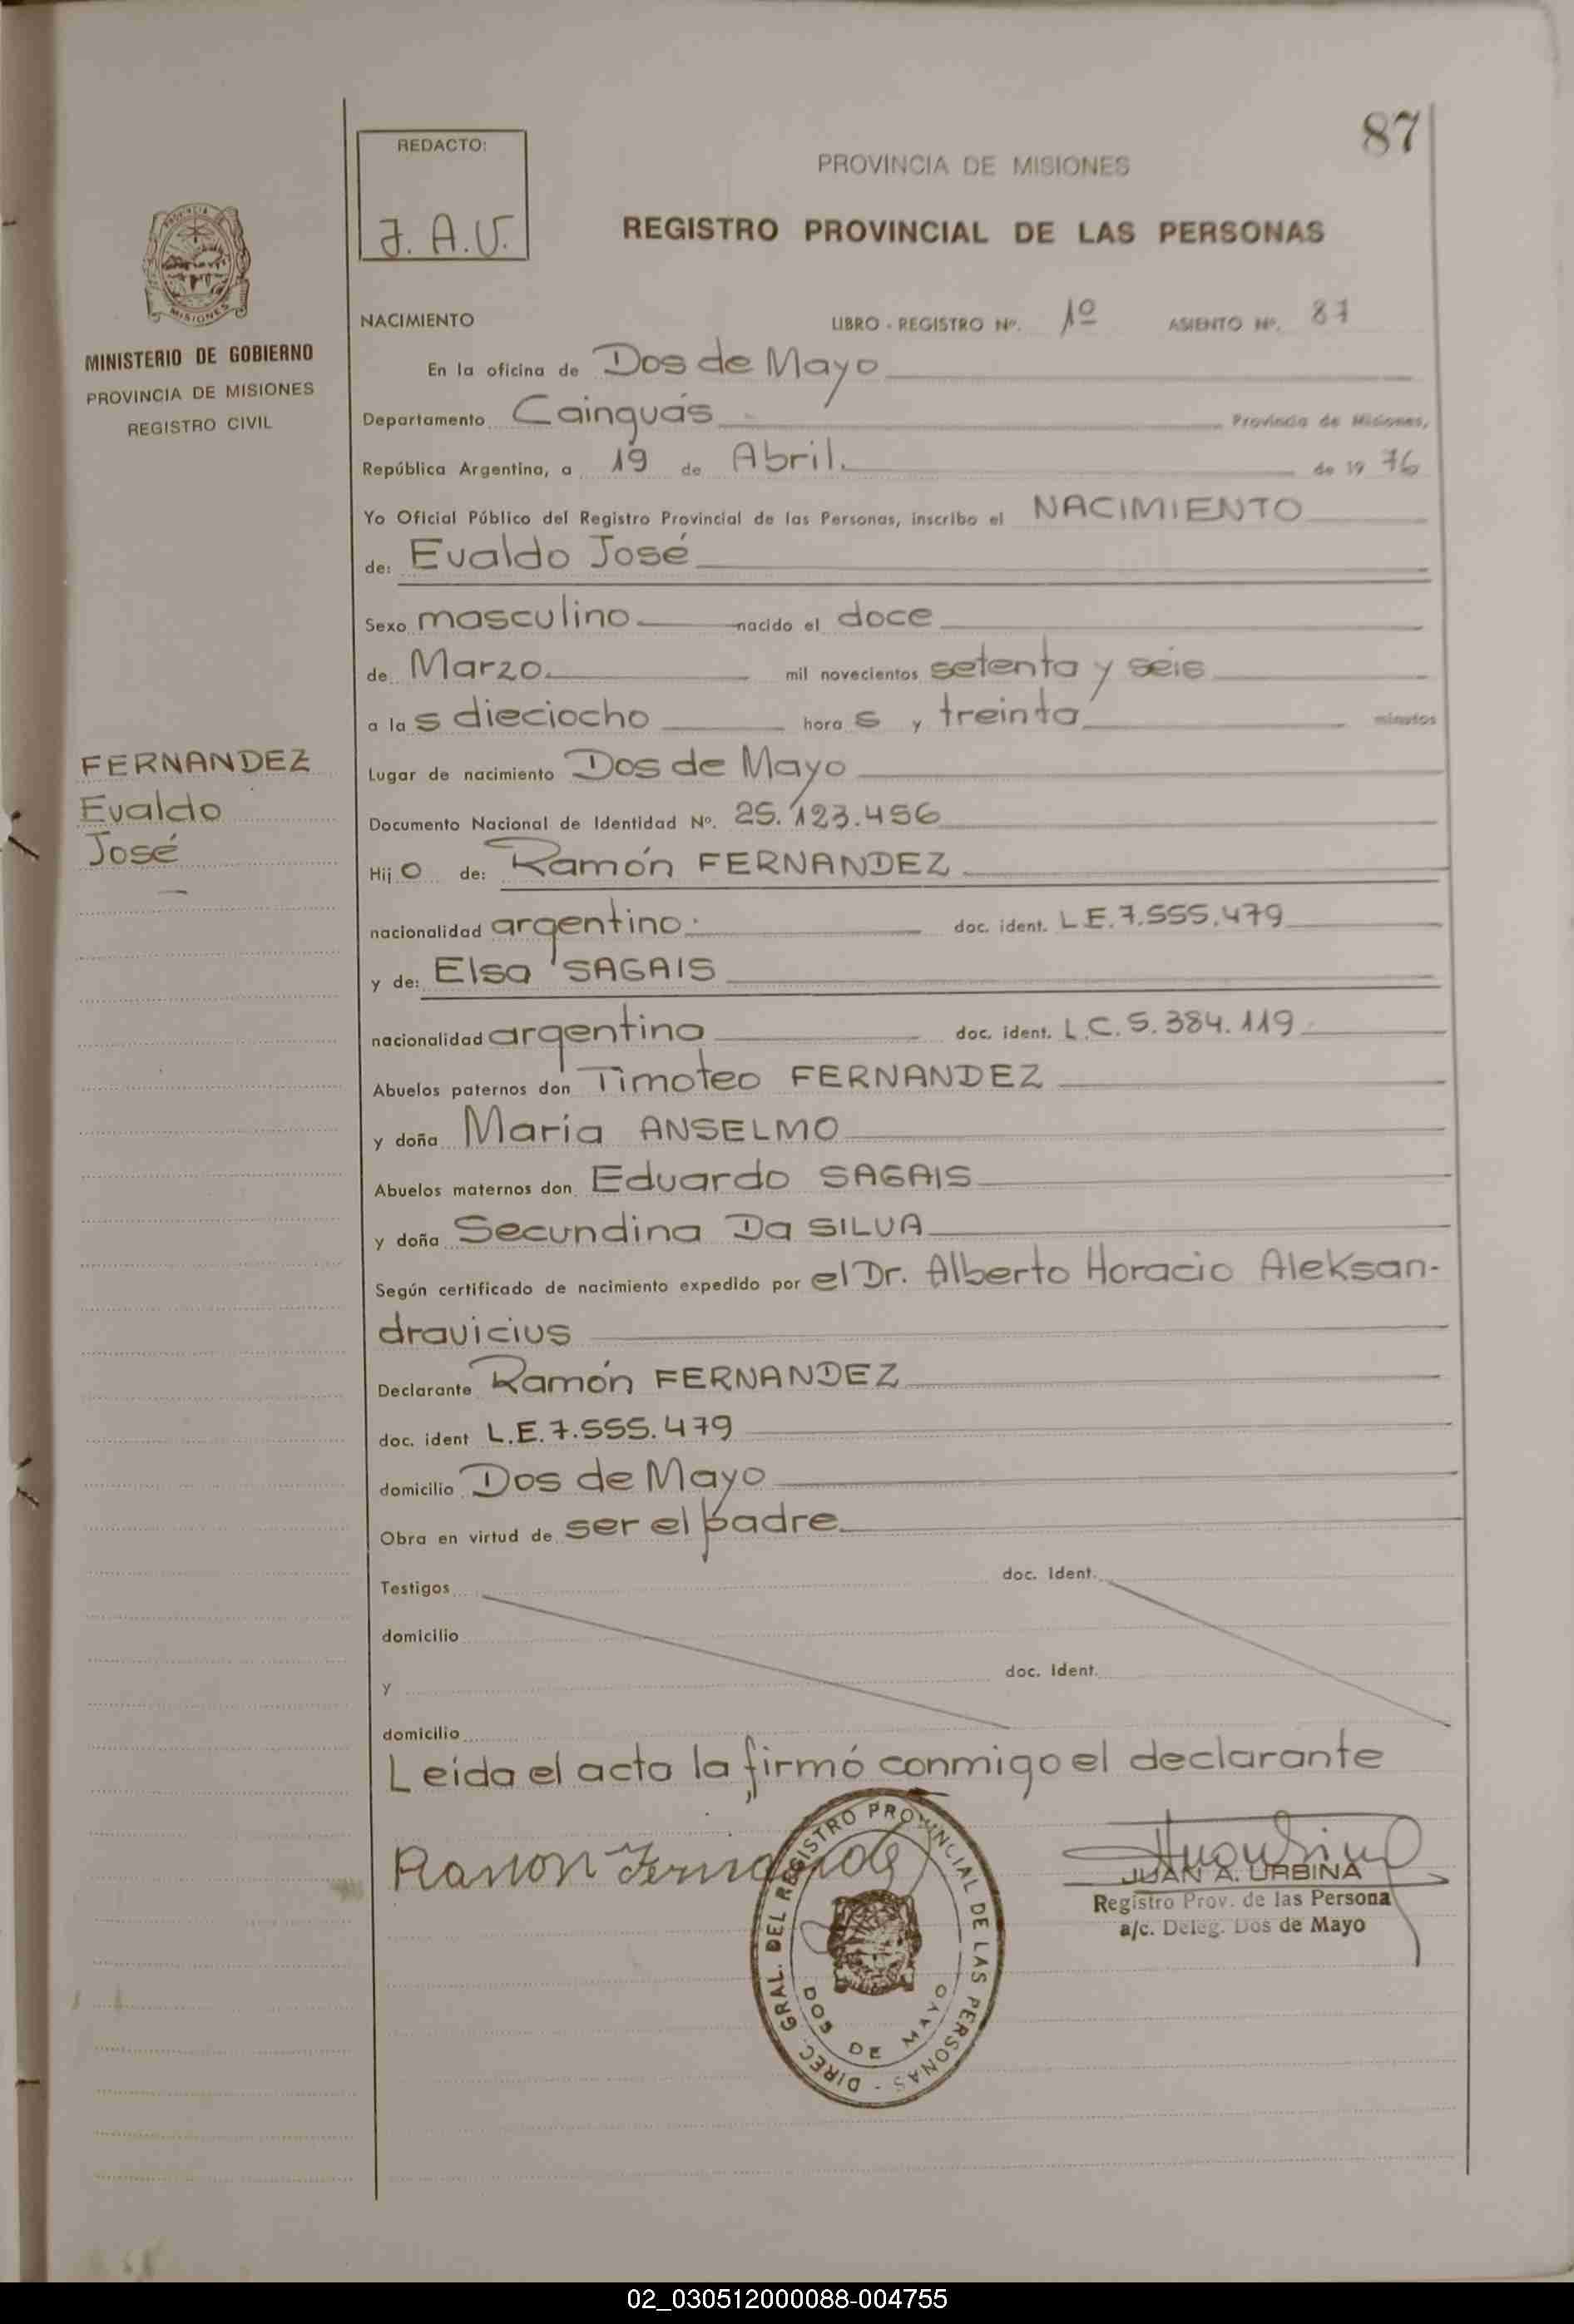 87
REDACTO:
J. A. V.
PROVINCIA DE MISIONES
REGISTRO PROVINCIAL DE LAS PERSONAS
MISIONES
MINISTERIO DE GOBIERNO
PROVINCIA DE MISIONES
REGISTRO CIVIL
FERNANDEZ
Evaldo
José
NACIMIENTO LIBRO - REGISTRO Nº. 1º ASIENTO Nº. 87
En la oficina de Dos de Mayo
Departamento Cainguás Provincia de Misiones,
República Argentina, a 19 de Abril. de 19 76
Yo Oficial Público del Registro Provincial de las Personas, inscribo el NACIMIENTO
de: Evaldo José
Sexo masculino nacido el doce
de Marzo. mil novecientos setenta y seis
a la s dieciocho hora s y treinta minutos
Lugar de nacimiento Dos de Mayo
Documento Nacional de Identidad Nº. 25.123.456
Hij o de: Ramón FERNANDEZ
nacionalidad argentino. doc. ident. L.E. 7.555.479
y de: Elsa SAGAIS
nacionalidad argentina doc. ident. L.C. 5.384.119
Abuelos paternos don Timoteo FERNANDEZ
y doña María ANSELMO
Abuelos maternos don Eduardo SAGAIS
y doña Secundina Da SILVA
Según certificado de nacimiento expedido por el Dr. Alberto Horacio Aleksan-
dravicius
Declarante Ramón FERNANDEZ
doc. ident L.E. 7.555.479
domicilio Dos de Mayo
Obra en virtud de ser el padre
Testigos doc. Ident.
domicilio
y doc. Ident.
domicilio
Leída el acta la firmó conmigo el declarante
Ramon Fernandez
DIREC. GRAL. DEL REGISTRO PROVINCIAL DE LAS PERSONAS -
DOS DE MAYO
JUAN A. URBINA
Registro Prov. de las Persona
a/c. Deleg. Dos de Mayo
02_030512000088-004755